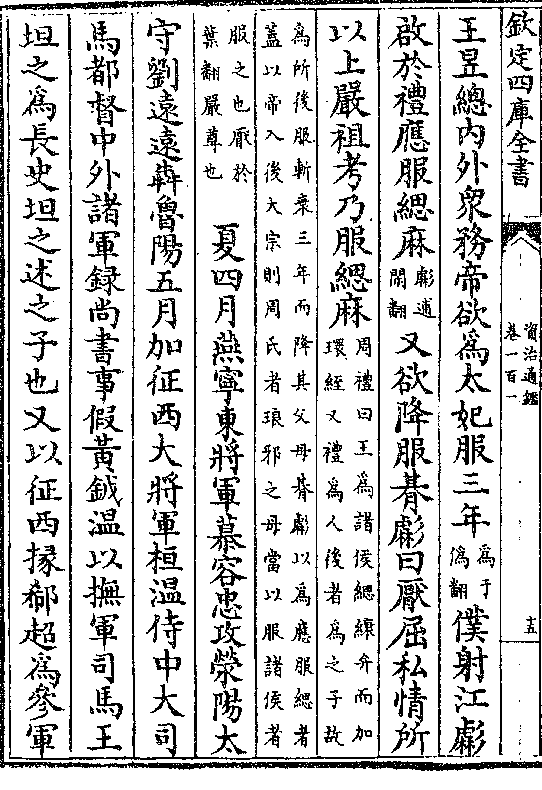 欽定四庫全書
資治通鑑
卷一百一
十五
王昱總内外衆務帝欲爲太妃服三年爲于僞翻僕射江虨
啟於禮應服緦麻虨逋閑翻又欲降服朞虨曰厭屈私情所
以上嚴祖考乃服緦麻周禮曰王爲諸侯緦縗弁而加環絰又禮爲人後者爲之子故
爲所後服斬衰三年而降其父母朞虨以爲應服緦者
蓋以帝入後大宗則周氏者琅邪之母當以服諸侯者
服之也厭於葉翻嚴尊也夏四月燕寧東將軍慕容忠攻滎陽太
守劉遠遠犇魯陽五月加征西大將軍桓溫侍中大司
馬都督中外諸軍録尚書事假黃鉞溫以撫軍司馬王
坦之爲長史坦之述之子也又以征西掾郗超爲參軍